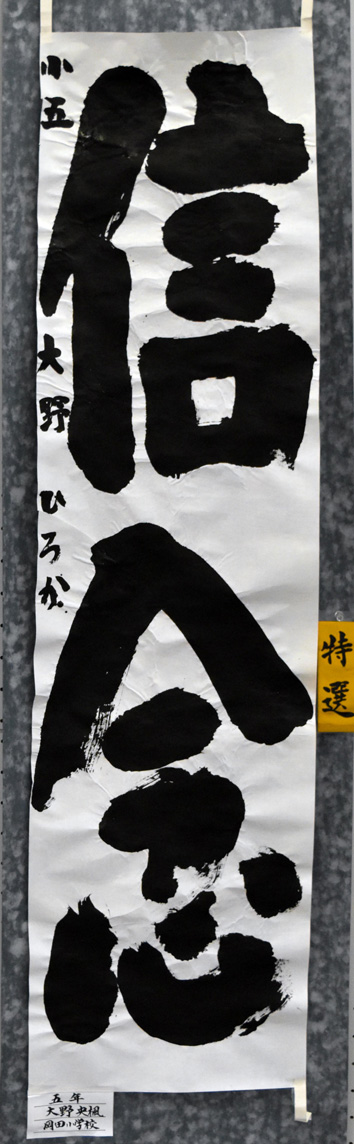 信念
小五 大野 ひろか
特選
五年
大野央楓
岡田小学校